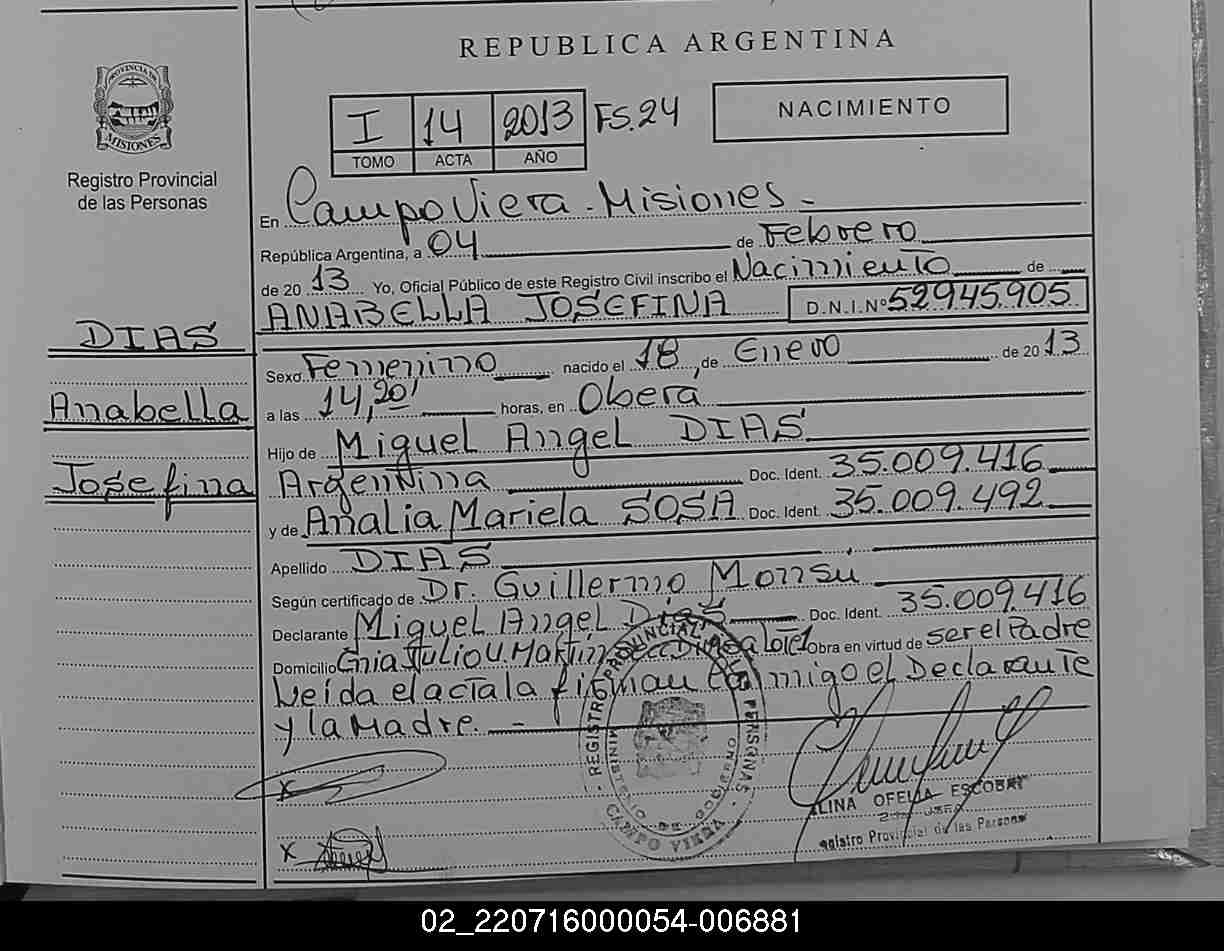 REPUBLICA ARGENTINA
PROVINCIA DE
MISIONES
Registro Provincial
de las Personas
I 14 2013 FS.24
TOMO ACTA AÑO
NACIMIENTO
En Campo Viera - Misiones -
República Argentina, a 04 de Febrero
de 20 13 Yo, Oficial Público de este Registro Civil inscribo el Nacimiento de
ANABELLA JOSEFINA D.N.I.Nº 52945.905
DIAS
Anabella
Josefina
Sexo Femenino nacido el 18, de Enero de 20 13
a las 14,20' horas, en Oberá
Hijo de Miguel Angel DIAS
Argentina Doc. Ident. 35.009.416
y de Analia Mariela SOSA Doc. Ident. 35.009.492
Apellido DIAS
Según certificado de Dr. Guillermo Monsú
Declarante Miguel Angel Dias Doc. Ident. 35.009.416
Domicilio Cnia Julio U. Martín Obra en virtud de ser el Padre
Leída el acta la firman conmigo el Declarante
y la Madre. -
REGISTRO PROVINCIAL DE LAS PERSONAS
MINISTERIO DE GOBIERNO
- CAMPO VIERA -
X
X
ALINA OFELIA ESCOBAR
Registro Provincial de las Personas
02_220716000054-006881